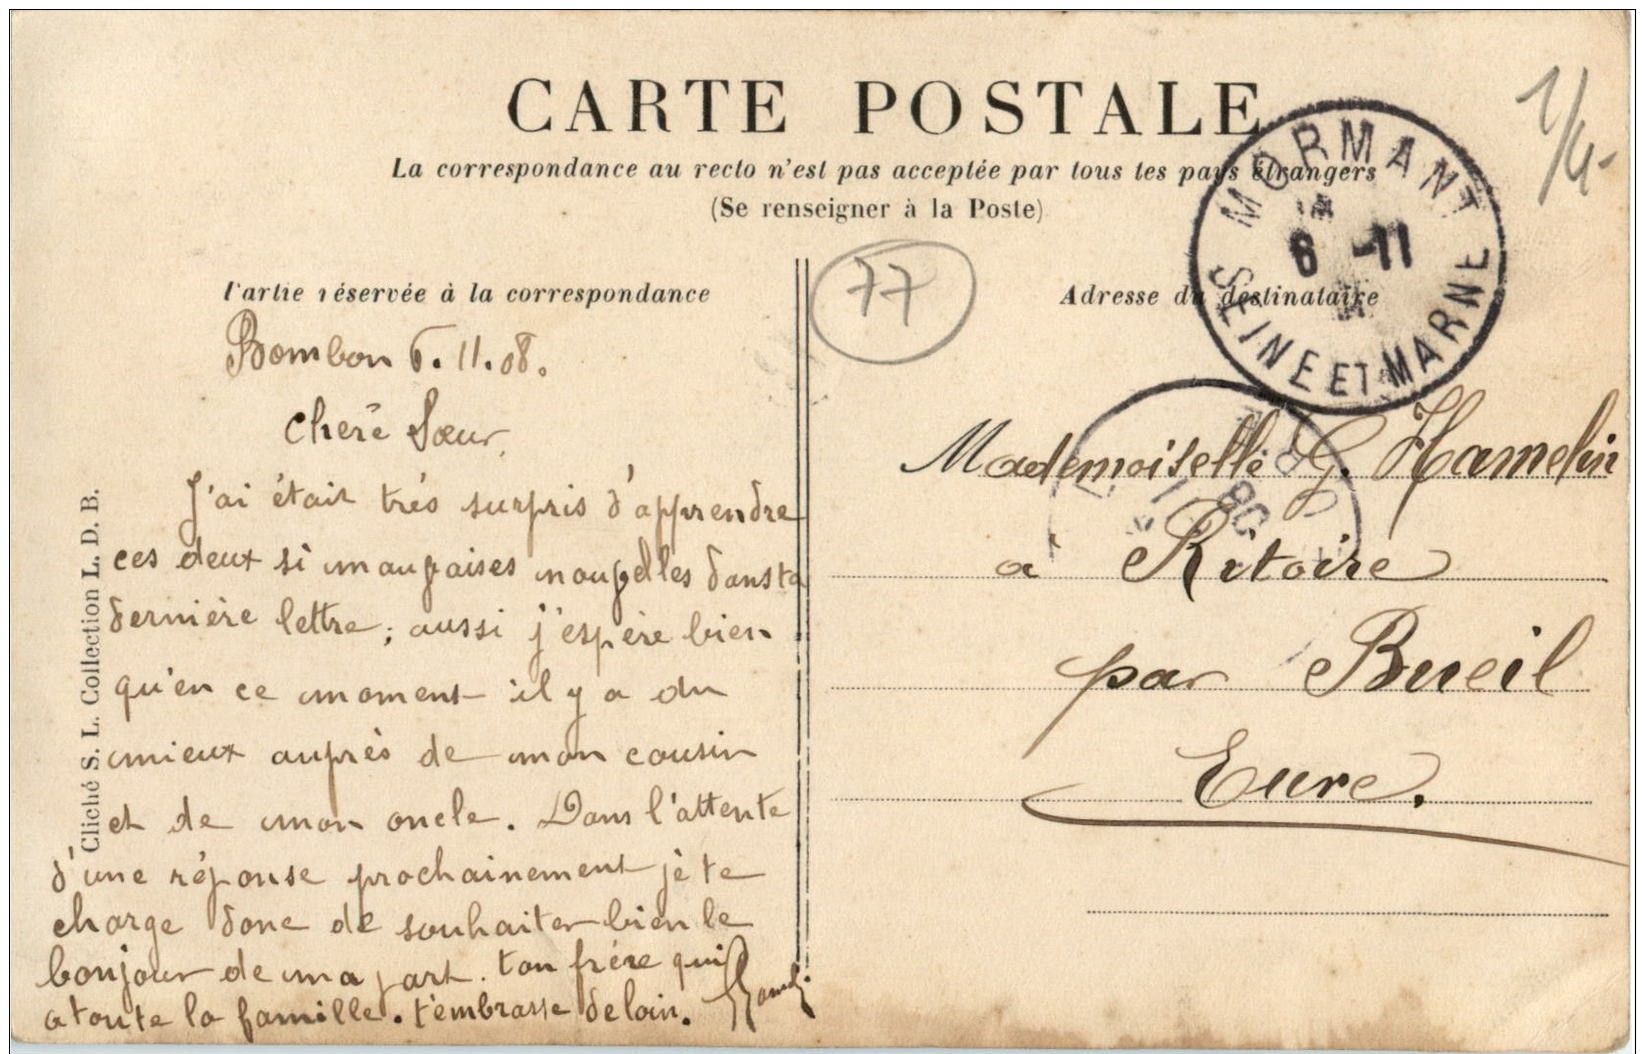 CARTE POSTALE
La correspondance au recto n'est pas acceptée par tous les pays étrangers
(Se renseigner à la Poste)
MORMANT
6 -11
SEINE ET MARNE
77
1/4-
Partie réservée à la correspondance
Adresse du destinataire
Bombon 6.11.08.
Chère Sœur,
J'ai était très surpris d'apprendre
ces deux si mauvaises nouvelles dans ta
dernière lettre; aussi j'espère bien
qu'en ce moment il y a du
mieux auprès de mon cousin
et de mon oncle. Dans l'attente
d'une réponse prochainement je te
charge donc de souhaiter bien le
bonjour de ma part. ton frère qui
a toute la famille. t'embrasse de loin.
Mademoiselle G. Hamelin
a Ritoire
par Bueil
Eure.
08
Cliché S. L. Collection L. D. B.